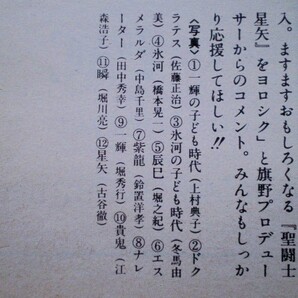 入。ますますおもしろくなる『聖闘士
星矢』をヨロシク」と旗野プロデュー
サーからのコメント。みんなもしっか
り応援してほしい!!
〈写真〉①一輝の子ども時代(上村典子)②ドク
ラテス(佐藤正治)③氷河の子ども時代(冬馬由
美)④氷河(橋本晃一)⑤辰巳(堀之紀)⑥エス
メラルダ(中島千里)⑦紫龍(鈴置洋孝)⑧ナレ
ーター(田中秀幸)⑨一輝(堀秀行)⑩貴鬼(江
森浩子)⑪瞬(堀川亮)⑫星矢(古谷徹)